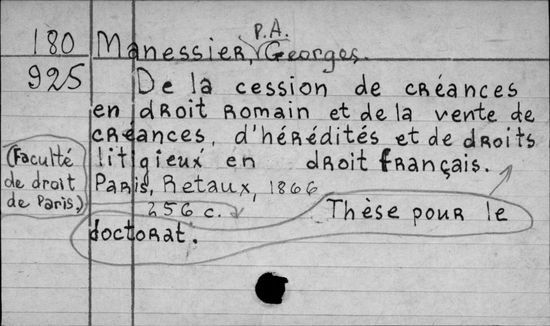 180 Manessier, P.A. Georges.
925 De la cession de créances
en droit romain et de la vente de
créances, d'hérédités et de droits
litigieux en droit français.
Paris, Retaux, 1866
256 c.
Thèse pour le
doctorat.
(Faculté
de droit
de Paris.)